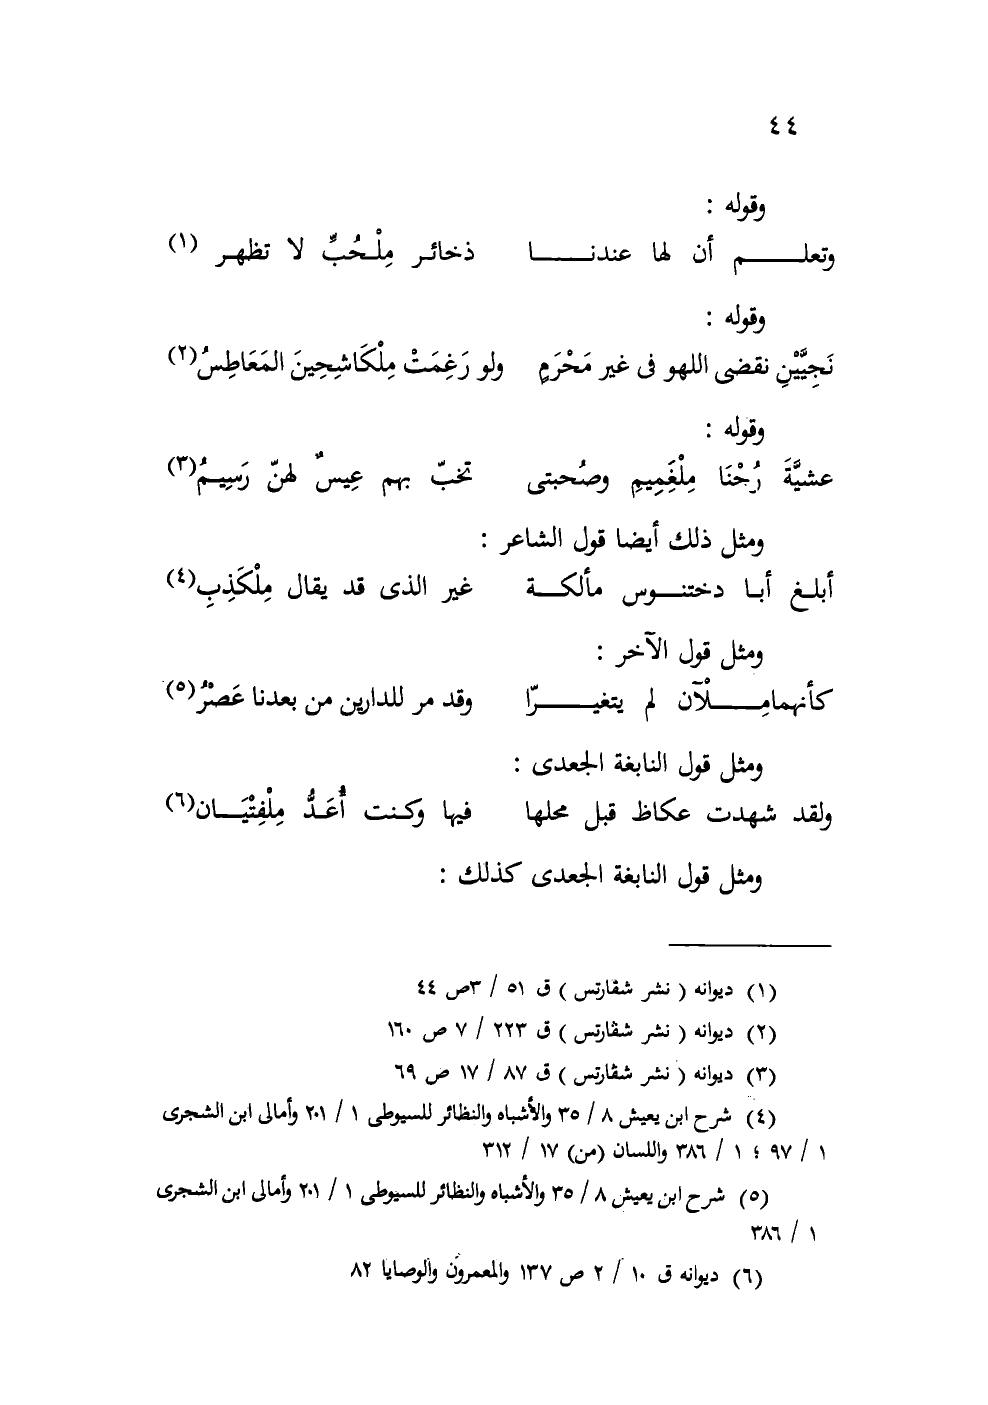 ٤٤
وقوله :
وتعلـــــم أن لها عندنـــــا ذخائـر مِلْـحُبٍّ لا تظهـر (١)
وقوله :
نَجِيَّيْنِ نقضى اللهو فى غير مَحْرَمٍ ولو رَغِمَتْ مِلْكَاشِحِينَ المَعَاطِسُ(٢)
وقوله :
عشيَّةَ رُحْنَا مِلْغَمِيمِ وصُحبتى تخبّ بهم عِيسٌ لهنّ رَسِيـمُ(٣)
ومثل ذلك أيضا قول الشاعر :
أبلـغ أبـا دختنـــوس مألكـــة غير الذى قد يقال مِلْكَذِبِ(٤)
ومثل قول الآخر :
كأنهمامِـــــلْآن لم يتغيـــــرّا وقد مر للدارين من بعدنا عَصْرُ(٥)
ومثل قول النابغة الجعدى :
ولقد شهدت عكاظ قبل محلها فيها وكـنت أُعَـدُّ مِلْفِتْيَـــان(٦)
ومثل قول النابغة الجعدى كذلك :
(١) ديوانه ( نشر شڤارتس ) ق ٥١ / ٣ص ٤٤
(٢) ديوانه ( نشر شڤارتس ) ق ٢٢٣ / ٧ ص ١٦٠
(٣) ديوانه ( نشر شڤارتس ) ق ٨٧ / ١٧ ص ٦٩
(٤) شرح ابن يعيش ٨ / ٣٥ والأشباه والنظائر للسيوطى ١ / ٢٠١ وأمالى ابن الشجرى
١ / ٩٧ ؛ ١ / ٣٨٦ واللسان (من) ١٧ / ٣١٢
(٥) شرح ابن يعيش ٨ / ٣٥ والأشباه والنظائر للسيوطى ١ / ٢٠١ وأمالى ابن الشجرى
١ / ٣٨٦
(٦) ديوانه ق ١٠ / ٢ ص ١٣٧ والمعمرون والوصايا ٨٢